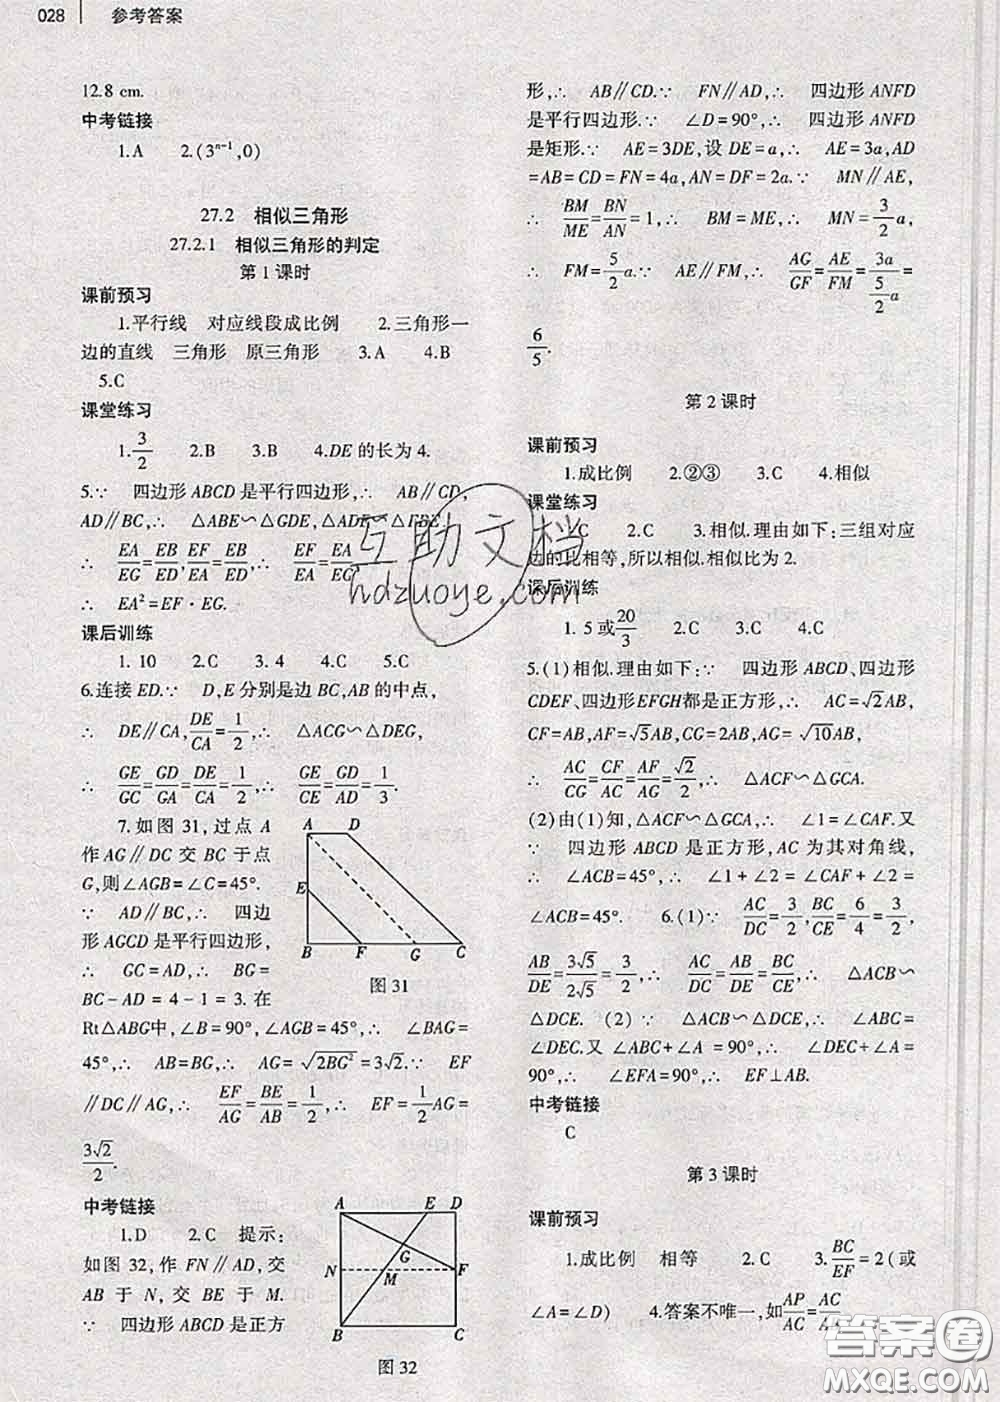 028 参考答案
12.8 cm.
中考链接
1.A 2.(3ⁿ⁻¹,0)
27.2 相似三角形
27.2.1 相似三角形的判定
第1课时
课前预习
1.平行线 对应线段成比例 2.三角形一
边的直线 三角形 原三角形 3.A 4.B
5.C
课堂练习
1.3/2 2.B 3.B 4.DE的长为4.
5.∵ 四边形ABCD是平行四边形,∴ AB∥CD,
AD∥BC,∴ △ABE∽△GDE,△ADE∽△FBE.
∴ EA/EG=EB/ED,EF/EA=EB/ED,∴ EF/EA=EA/EG,
∴ EA²=EF·EG.
课后训练
1. 10 2.C 3. 4 4.C 5.C
6.连接ED.∵ D,E分别是边BC,AB的中点,
∴ DE∥CA,DE/CA=1/2,∴ △ACG∽△DEG,
∴ GE/GC=GD/GA=DE/CA=1/2,∴ GE/CE=GD/AD=1/3.
7.如图31,过点A
作AG∥DC交BC于点
G,则∠AGB=∠C=45°.
∵ AD∥BC,∴ 四边
形AGCD是平行四边形,
∴ GC=AD,∴ BG=
BC-AD=4-1=3.在
A D
E
B F G C
图31
Rt△ABG中,∠B=90°,∠AGB=45°,∴ ∠BAG=
45°,∴ AB=BG,∴ AG=√(2BG²)=3√2.∵ EF
∥DC∥AG,∴ EF/AG=BE/AB=1/2,∴ EF=1/2AG=
3√2/2.
中考链接
1.D 2.C 提示:
如图32,作FN∥AD,交
AB于N,交BE于M.
∵ 四边形ABCD是正方
A E D
G
N M F
B C
图32
形,∴ AB∥CD.∵ FN∥AD,∴ 四边形ANFD
是平行四边形.∵ ∠D=90°,∴ 四边形ANFD
是矩形.∵ AE=3DE,设DE=a,∴ AE=3a,AD
=AB=CD=FN=4a,AN=DF=2a.∵ MN∥AE,
∴ BM/ME=BN/AN=1,∴ BM=ME,∴ MN=3/2a,
∴ FM=5/2a.∵ AE∥FM,∴ AG/GF=AE/FM=3a/(5/2a)=
6/5.
第2课时
课前预习
1.成比例 2.②③ 3.C 4.相似
课堂练习
C 2.C 3.相似.理由如下:三组对应
边的比相等,所以相似.相似比为2.
课后训练
1. 5或20/3 2.C 3.C 4.C
5.(1)相似.理由如下:∵ 四边形ABCD、四边形
CDEF、四边形EFGH都是正方形,∴ AC=√2AB,
CF=AB,AF=√5AB,CG=2AB,AG=√10AB,
∴ AC/CG=CF/AC=AF/AG=√2/2,∴ △ACF∽△GCA.
(2)由(1)知,△ACF∽△GCA,∴ ∠1=∠CAF.又
∵ 四边形ABCD是正方形,AC为其对角线,
∴ ∠ACB=45°.∴ ∠1+∠2=∠CAF+∠2=
∠ACB=45°. 6.(1)∵ AC/DC=3/2,BC/CE=6/4=3/2,
AB/DE=3√5/2√5=3/2,∴ AC/DC=AB/DE=BC/CE,∴ △ACB∽
△DCE. (2)∵ △ACB∽△DCE,∴ ∠ABC=
∠DEC.又∠ABC+∠A=90°,∴ ∠DEC+∠A=
90°,∴ ∠EFA=90°,∴ EF⊥AB.
中考链接
C
第3课时
课前预习
1.成比例 相等 2.C 3.BC/EF=2(或
∠A=∠D) 4.答案不唯一,如AP/AC=AC/
互助文档
hdzuoye.com
答案卷
MXQE.COM